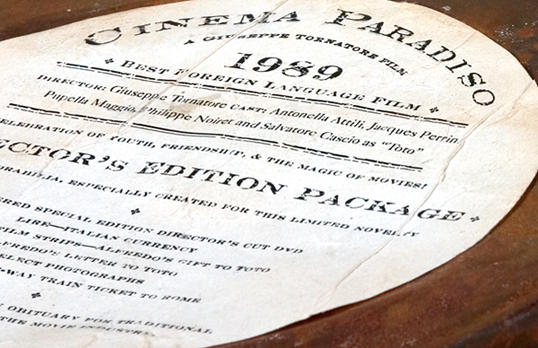 CINEMA PARADISO
A GIUSEPPE TORNATORE FILM
1989
BEST FOREIGN LANGUAGE FILM
DIRECTOR: Giuseppe Tornatore CAST: Antonella Attili, Jacques Perrin
Pupella Maggio, Philippe Noiret and Salvatore Cascio as "Toto"
ELEBRATION OF YOUTH, FRIENDSHIP, & THE MAGIC OF MOVIES!
ECTOR'S EDITION PACKAGE
ORABILIA, ESPECIALLY CREATED FOR THIS LIMITED NOVELTY
ERED SPECIAL EDITION DIRECTOR'S CUT DVD
LIRE—ITALIAN CURRENCY
FILM STRIPS—ALFREDO'S GIFT TO TOTO
ALFREDO'S LETTER TO TOTO
SELECT PHOTOGRAPHS
-WAY TRAIN TICKET TO ROME
OBITUARY FOR TRADITIONAL
THE MOVIE INDUSTRY